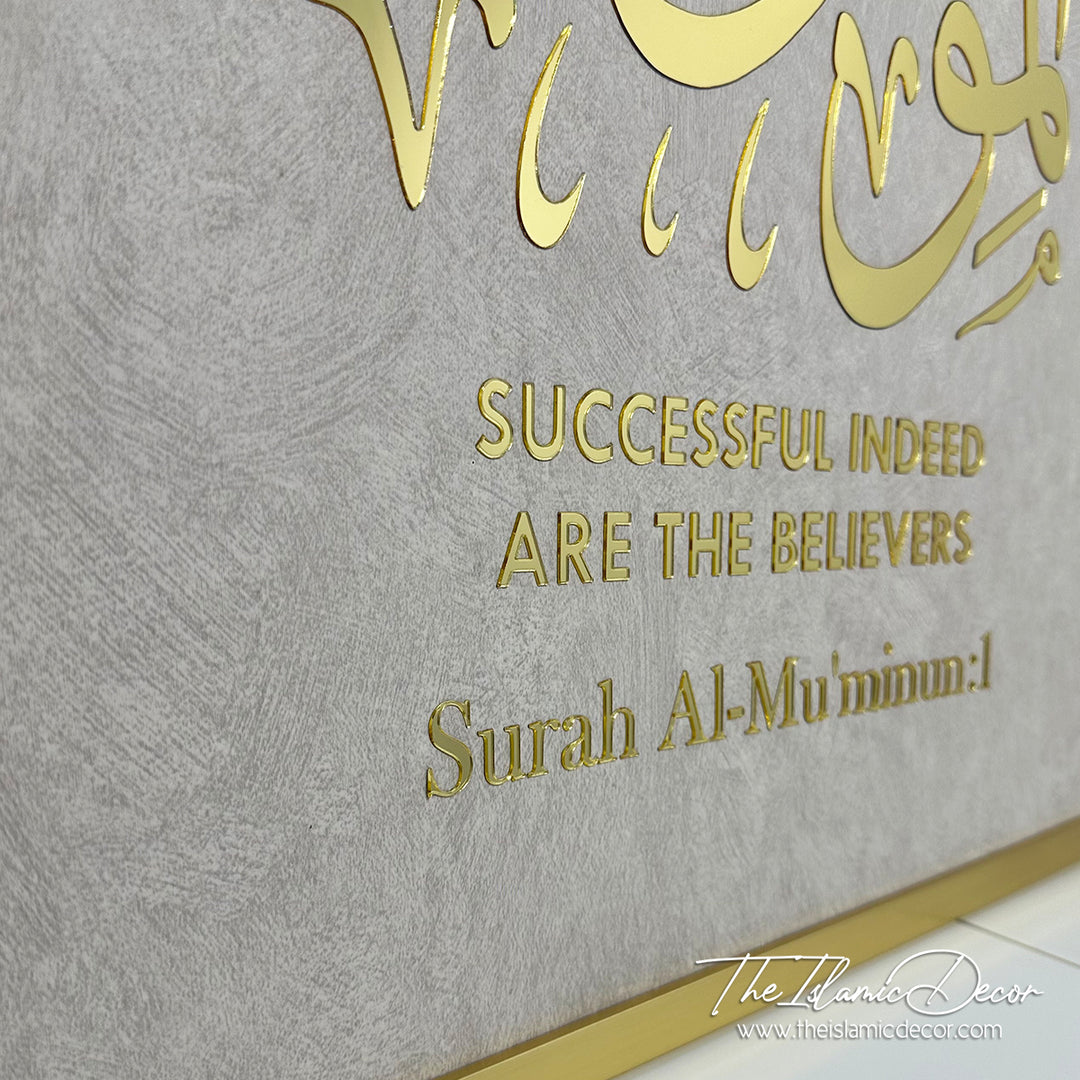 SUCCESSFUL INDEED
ARE THE BELIEVERS
Surah Al-Mu'minun:1
The Islamic Decor
www.theislamicdecor.com